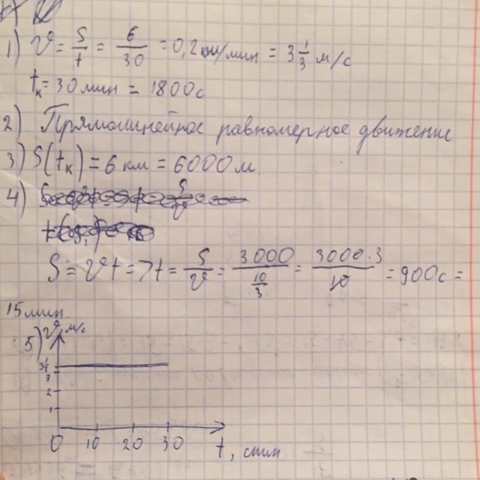 1) V = S/t = 6/30 = 0,2 км/мин = 3 1/3 м/с
tк = 30 мин = 1800 с
2) Прямолинейное равномерное движение
3) S(tк) = 6 км = 6000 м
4)
S = Vt => t = S/V = 3000/(10/3) = 3000·3/10 = 900 с =
15 мин
5) V м/с
3 1/3
3
2
1
0 10 20 30 t, мин